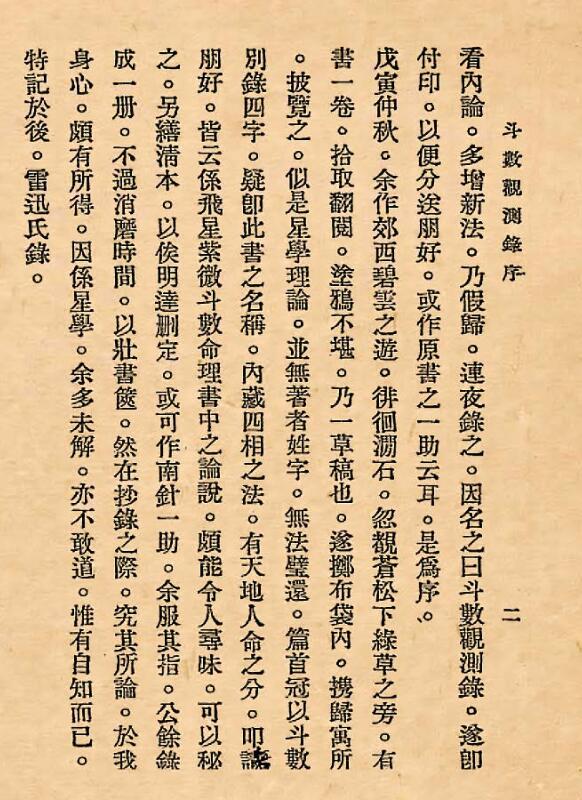 斗數觀測錄序
二
看內論。多增新法。乃假歸。連夜錄之。因名之曰斗數觀測錄。遂卽
付印。以便分送朋好。或作原書之一助云耳。是爲序。
戊寅仲秋。余作郊西碧雲之遊。徘徊澗石。忽覩蒼松下綠草之旁。有
書一卷。拾取翻閱。塗鴉不堪。乃一草稿也。遂擲布袋內。携歸寓所
。披覽之。似是星學理論。並無著者姓字。無法璧還。篇首冠以斗數
別錄四字。疑卽此書之名稱。內藏四相之法。有天地人命之分。叩諸
朋好。皆云係飛星紫微斗數命理書中之論說。頗能令人尋味。可以秘
之。另繕淸本。以俟明達删定。或可作南針一助。余服其指。公餘錄
成一册。不過消磨時間。以壯書篋。然在抄錄之際。究其所論。於我
身心。頗有所得。因係星學。余多未解。亦不敢道。惟有自知而已。
特記於後。雷迅氏錄。